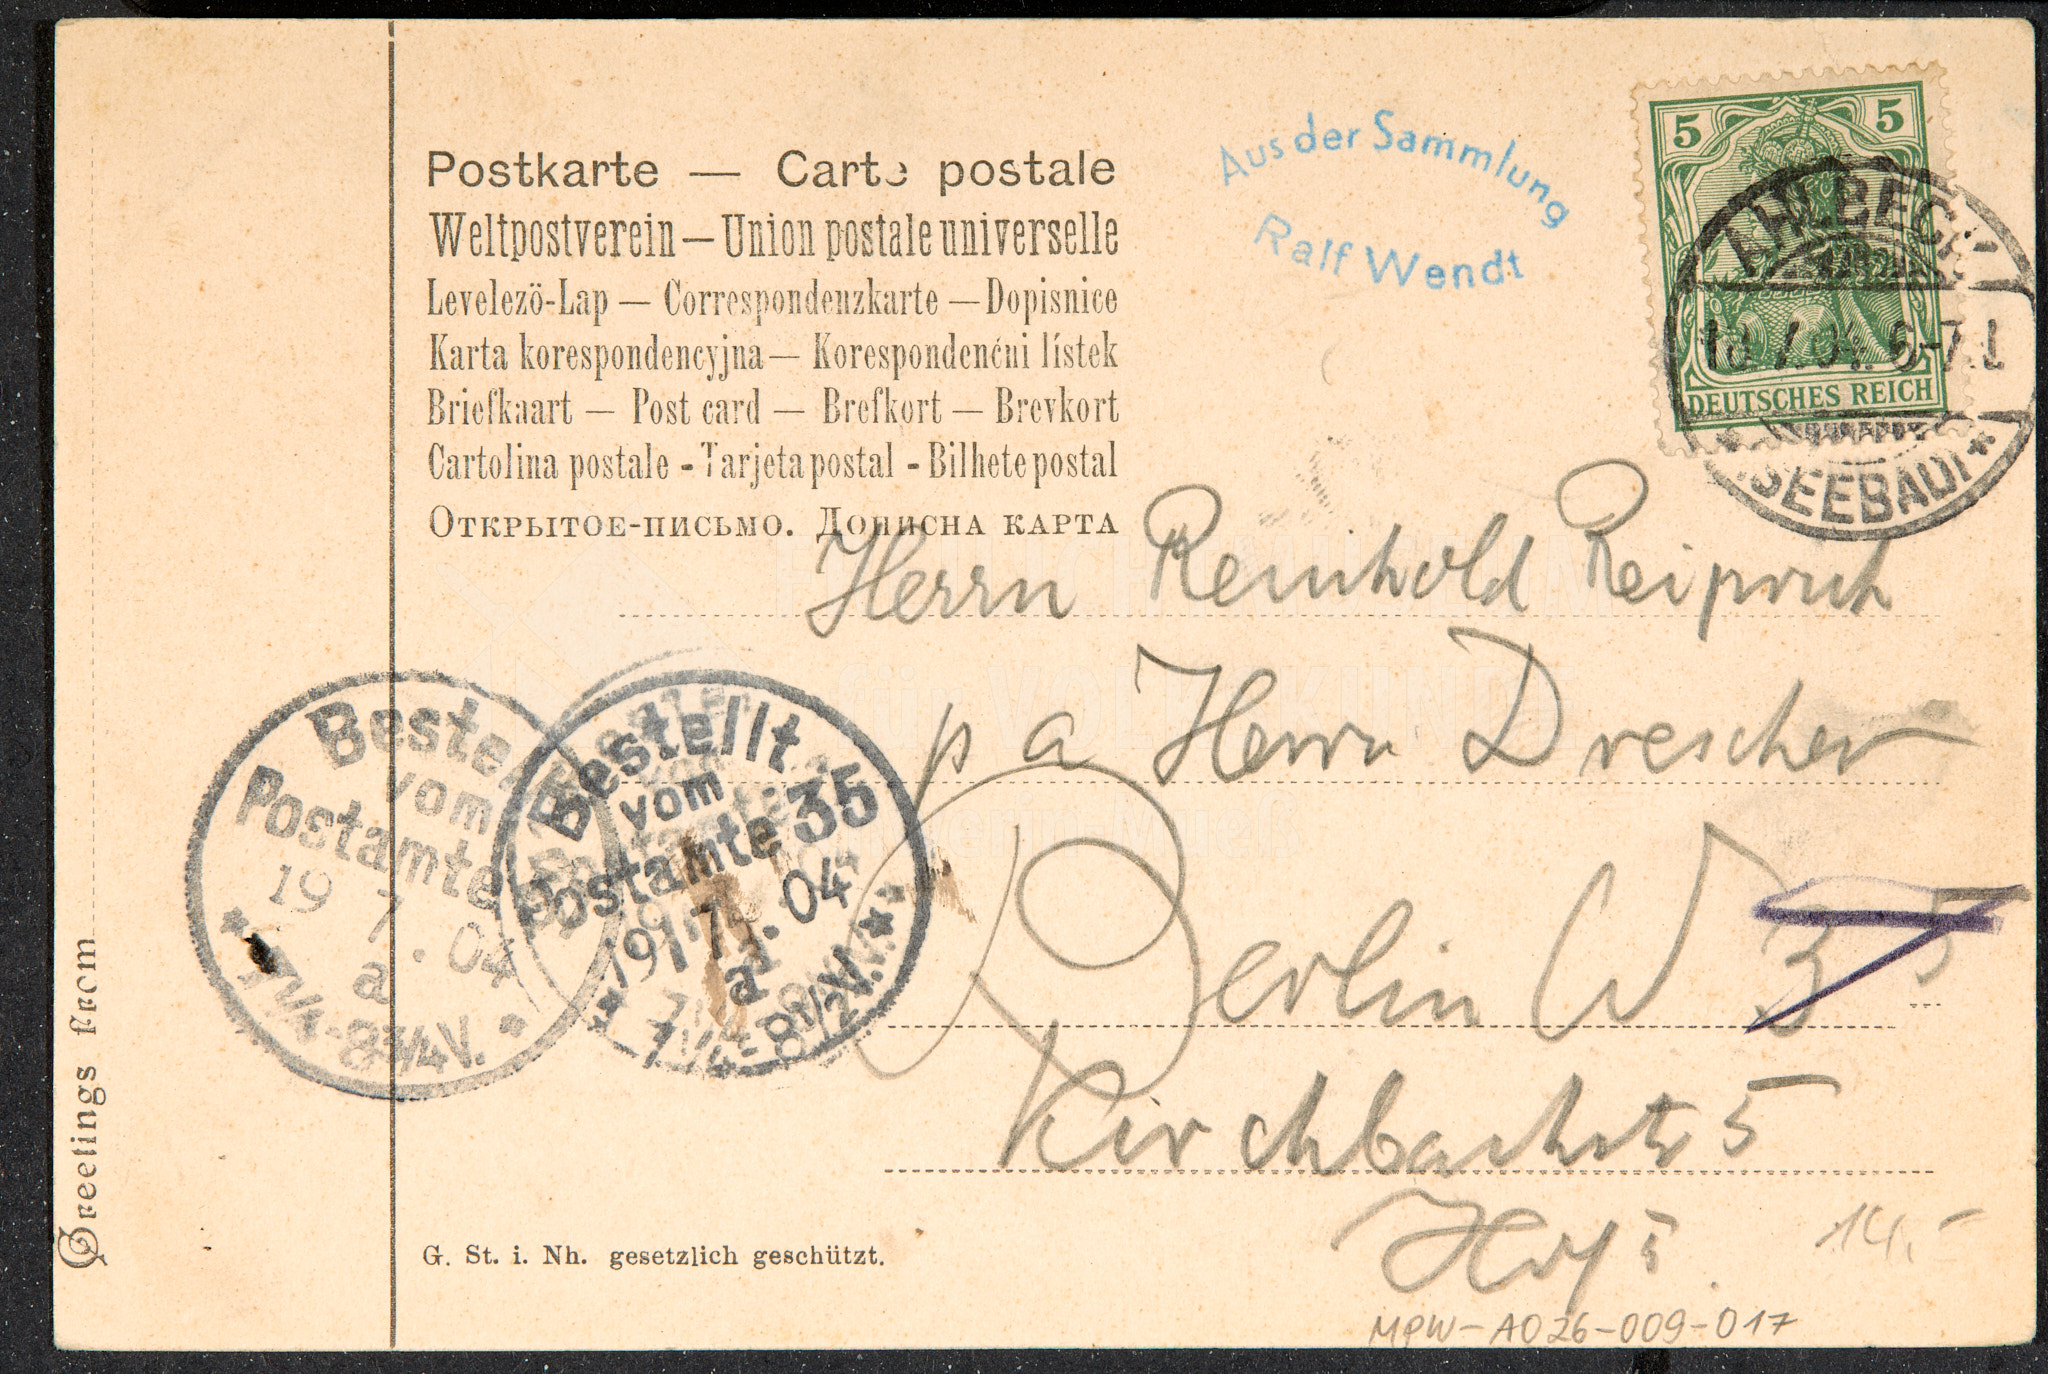 Postkarte — Carte postale
Weltpostverein — Union postale universelle
Levelezö-Lap — Correspondenzkarte — Dopisnice
Karta korespondencyjna — Korespondenčni lístek
Briefkaart — Post card — Brefkort — Brevkort
Cartolina postale - Tarjeta postal - Bilhete postal
Открытое-письмо. Дописна карта
Aus der Sammlung
Ralf Wendt
5 5
DEUTSCHES REICH
AHLBECK
18.7.04. 6-7.
* (SEEBAD) *
Herrn Reinhold
p a Herrn Drescher
Berlin W 35
Kirchbachstr 5
Hof
14,-
MPW-A026-009-017
Bestellt
vom
Postamte
19 7. 04
a
7¼-8¾V.
Bestellt
vom
Postamte 35
19. 7. 04
a
7¼-8½V.
Greetings from
G. St. i. Nh. gesetzlich geschützt.
FREILICHTMUSEUM
für VOLKSKUNDE
Schwerin Mueß